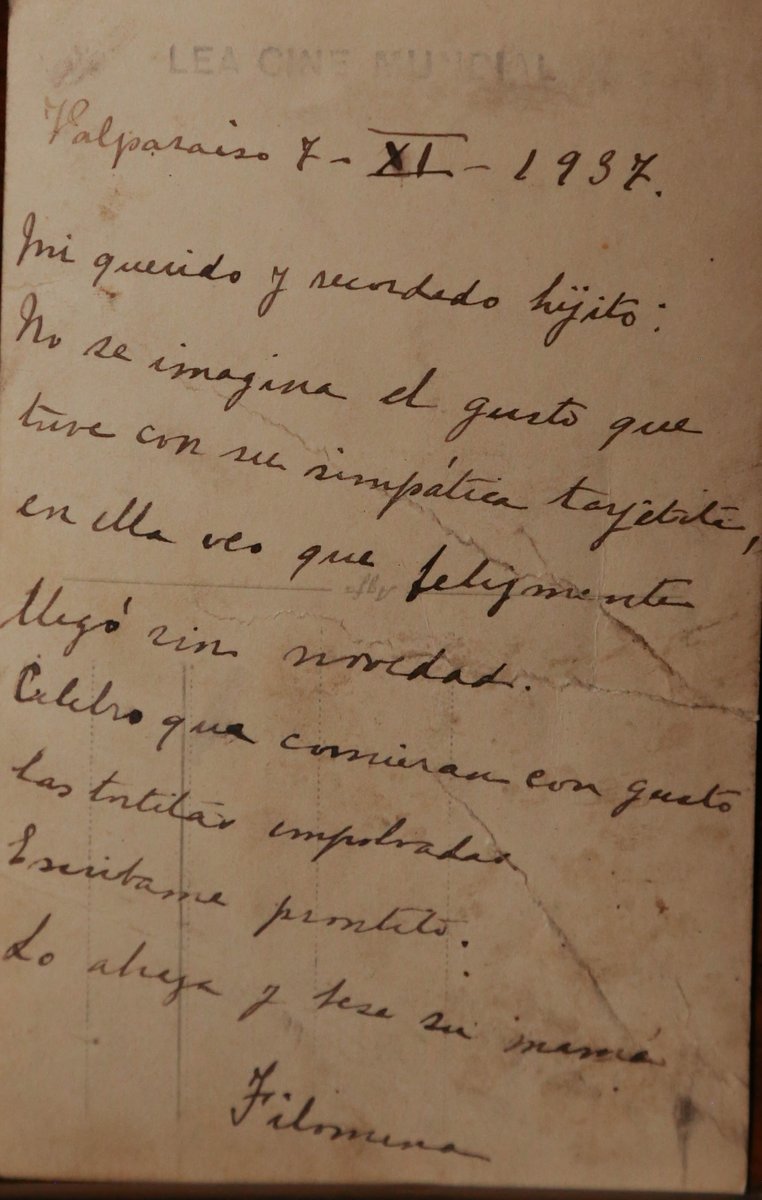 LEA CINE MUNDIAL
Valparaiso 7-XI-1937.
Mi querido y recordado hijito:
No se imagina el gusto que
tuve con su simpática tarjetita,
en ella veo que felizmente
llegó sin novedad.
Celebro que comieran con gusto
las tortitas empolvadas
Escribame prontito.
Lo abraza y besa su mamá
Filomena